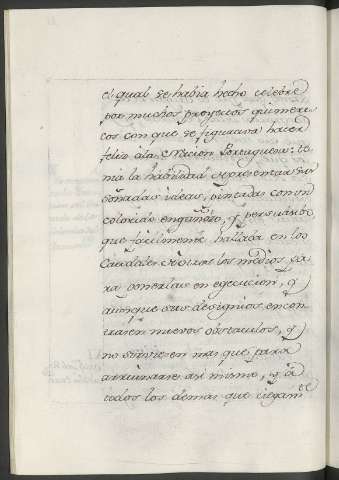 el qual se habia hecho celebre
por muchos proyectos quimeri
cos con que se figurava hacer
feliz à la Nacion Portuguesa: te
nia la habilidad representar sus
soñadas ideas, pintadas con un
colorido engañoso, y persuadido
que facilmente hallaba en los
los medios pa
ra ponerlas en egecucion, y
aunque sus designios encon
traren nuevos obstaculos, y
no sirviesen mas que para
arruinarse asi mismo, y à
todos los demas que ciegam.te